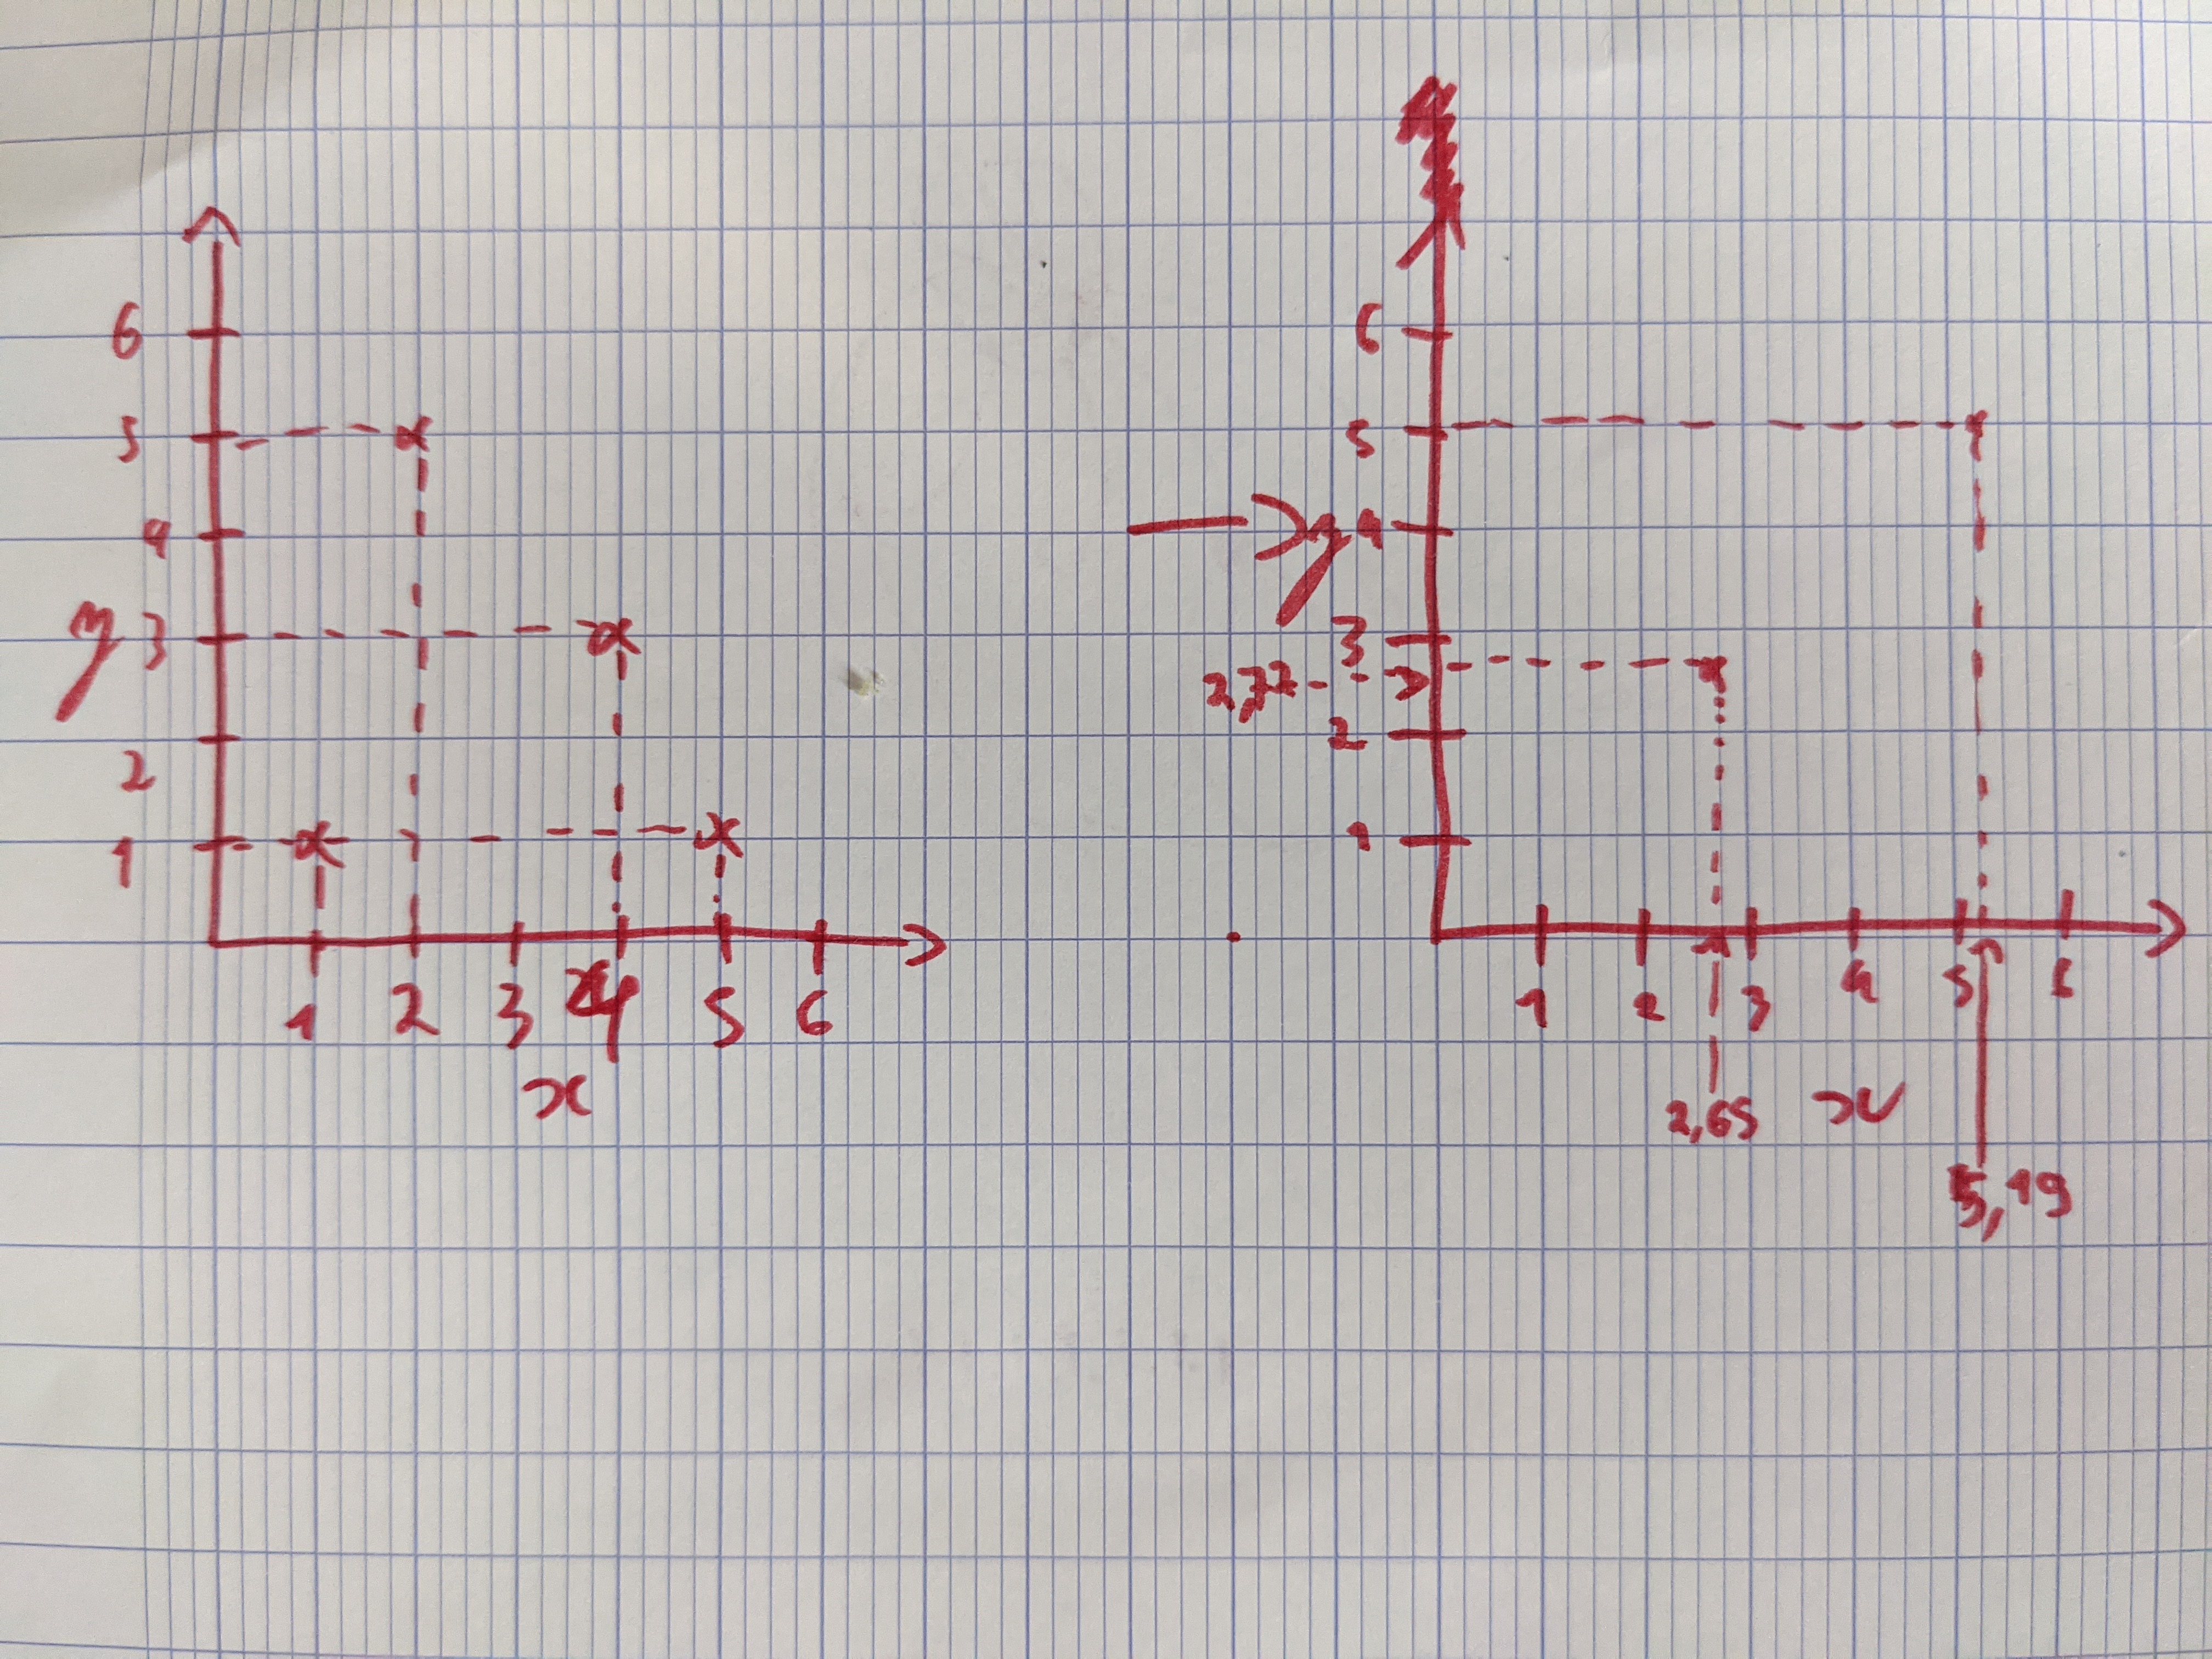 6
5
4
y 3
2
1
1 2 3 4 5 6
x
6
5
y 4
3
2,72
2
1
1 2 3 4 5 6
2,65 x
5,19